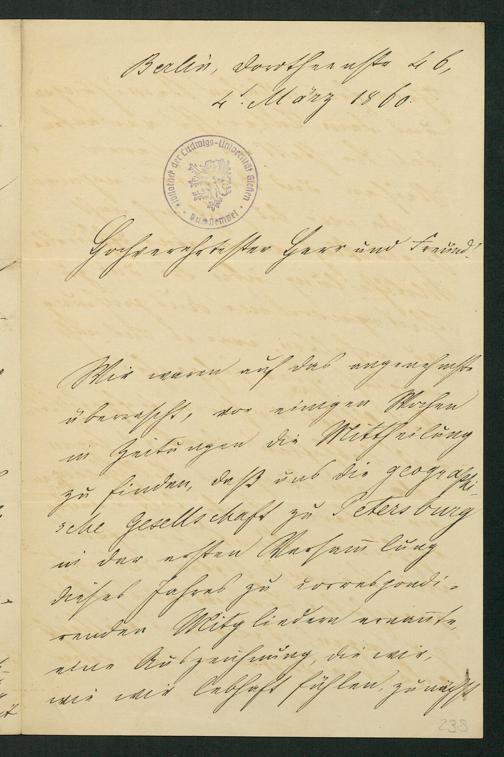 Berlin, Dorotheenstr 46,
4t März 1860.
Bibliothek der Ludwigs-Universität Gießen
Hochverehrtester Herr und Freund!
Wir waren auf das angenehmste
überrascht, vor einigen Wochen
in Zeitungen die Mittheilung
zu finden, daß uns die geographi-
sche Gesellschaft zu Petersburg
in der ersten Versam̄lung
dieses Jahres zu correspondi-
renden Mitgliedern ernan̄te,
eine Auszeichnung, die wir,
wie wir lebhaft fühlen, zunächst
239